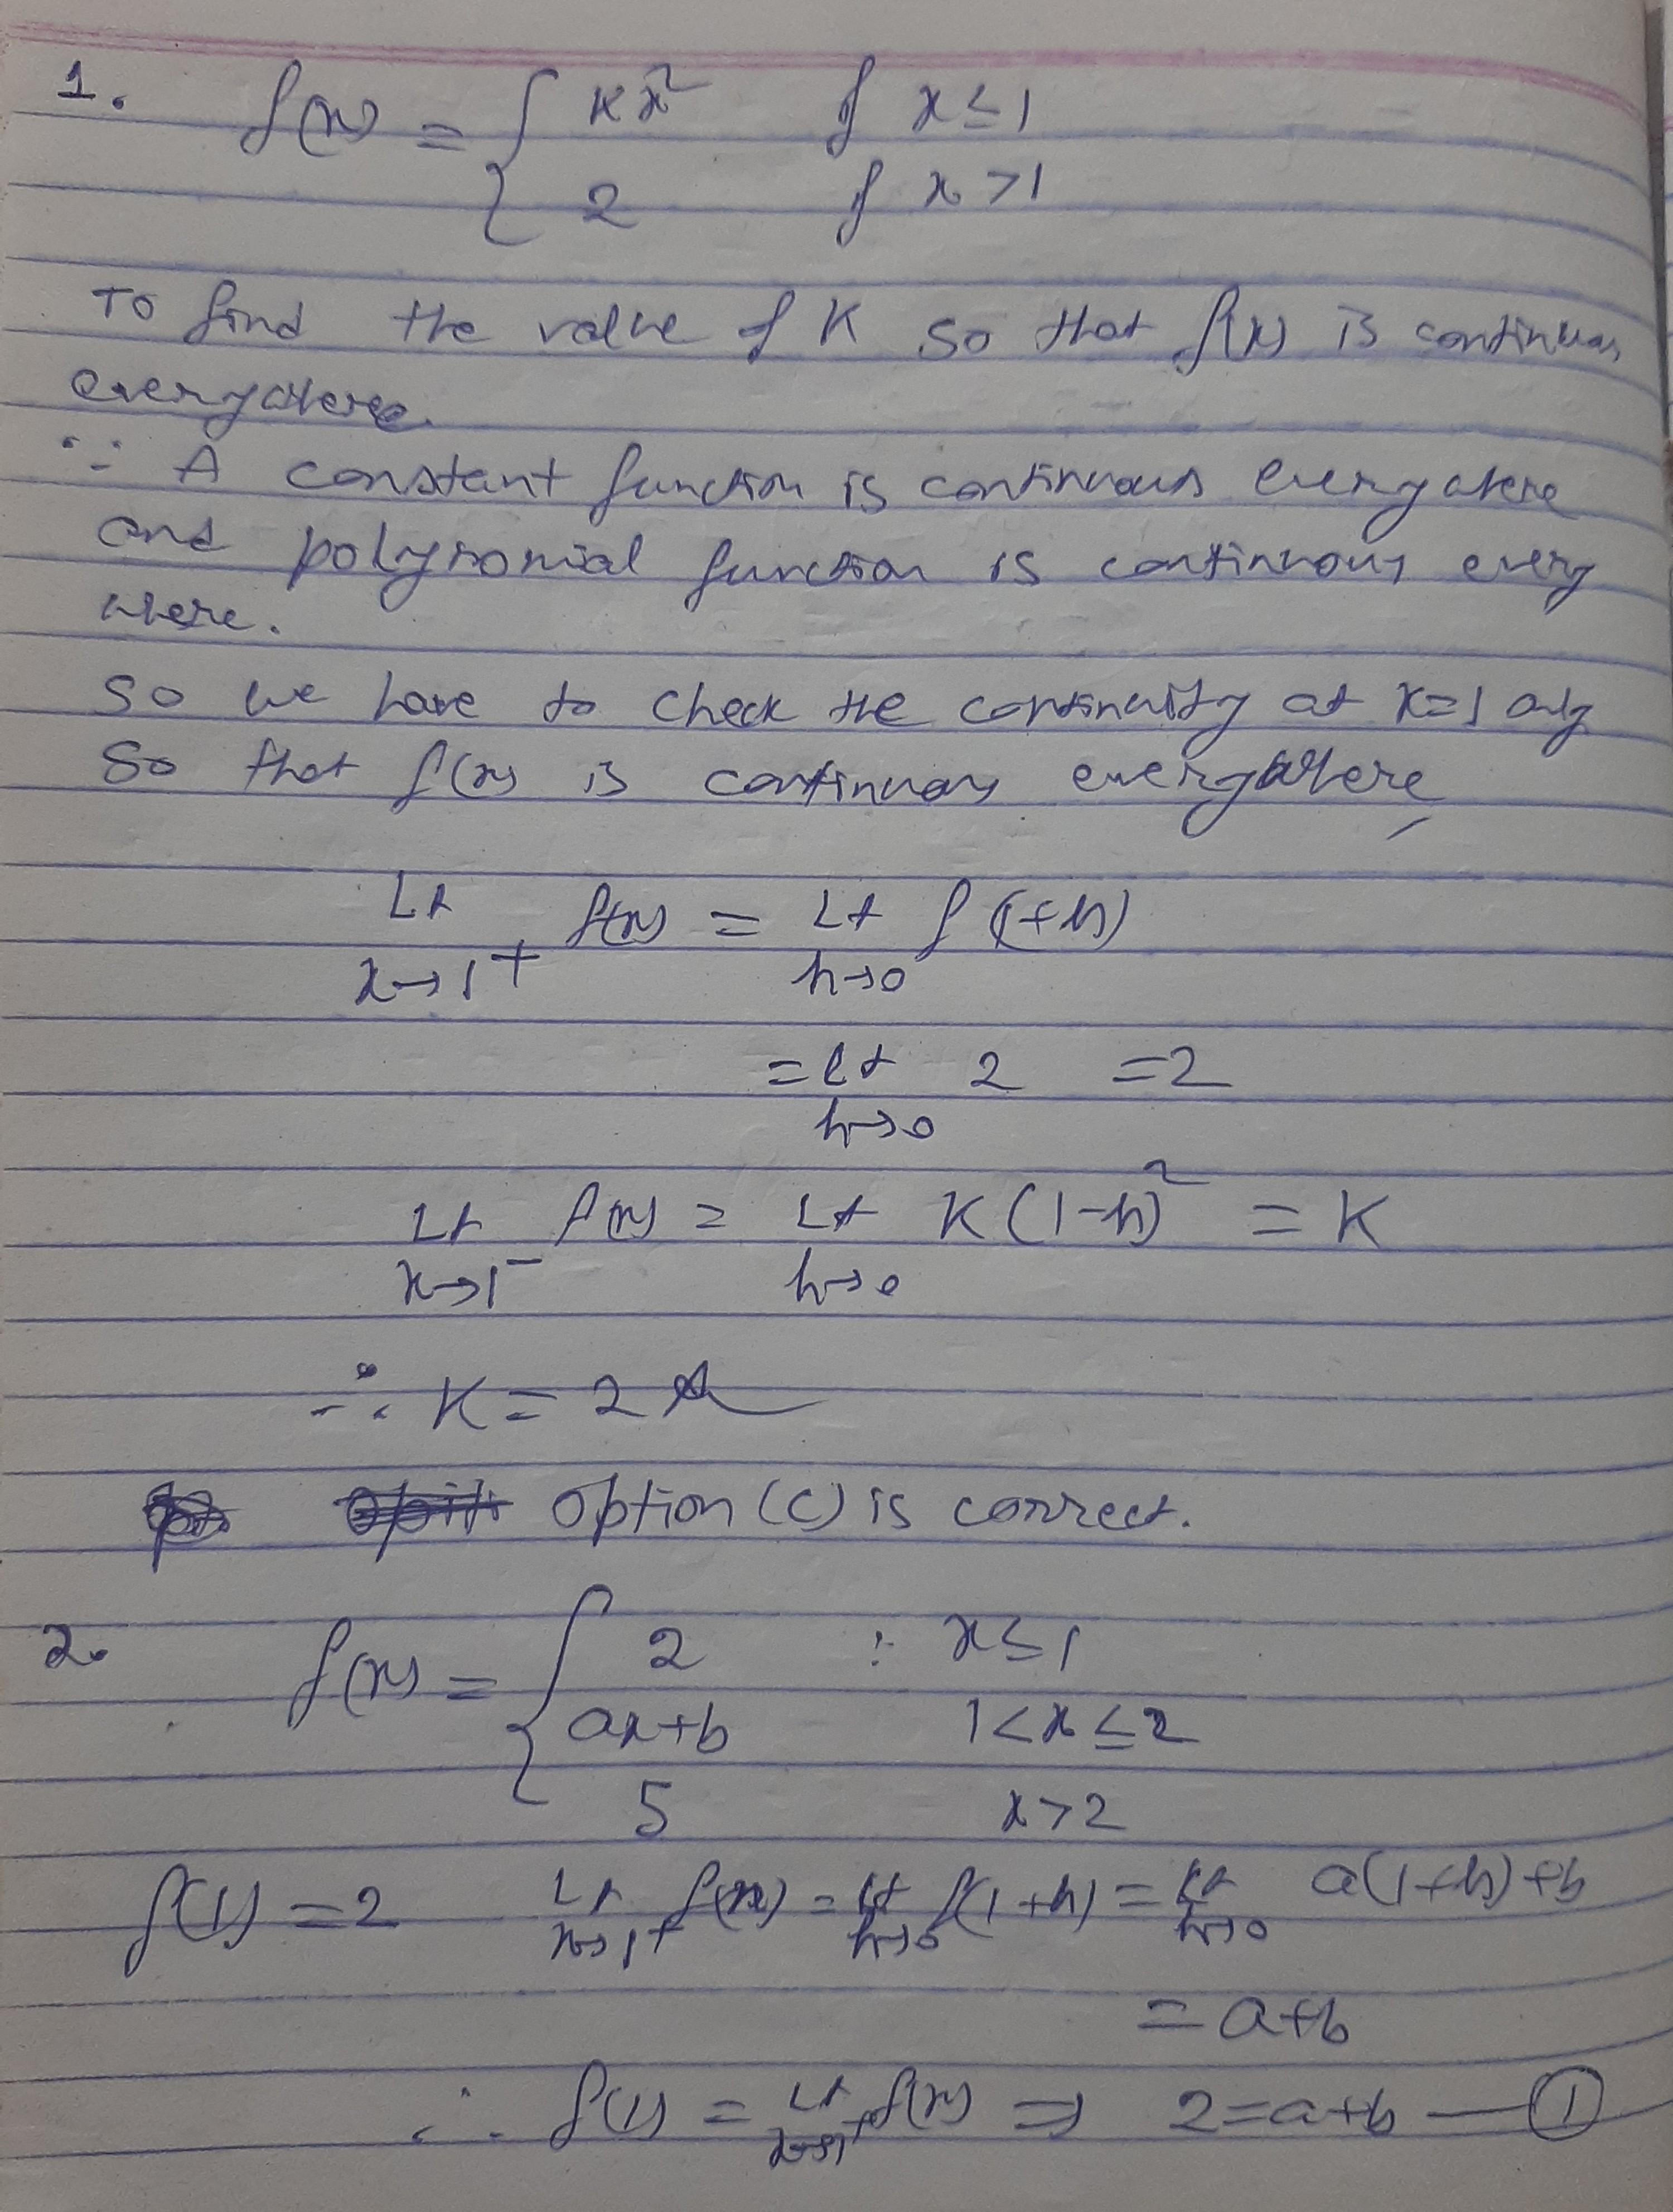 1. f(x) = { Kx² if x≤1
2 if x>1
To find the value of K so that f(x) is continuous
everywhere.
∵ A constant function is continuous everywhere
and polynomial function is continuous every
where.
So we have to check the continuity at x=1 only
So that f(x) is continuous everywhere
Lt x→1⁺ f(x) = Lt h→0 f(1+h)
= Lt h→0 2 = 2
Lt x→1⁻ f(x) = Lt h→0 K(1-h)² = K
∴ K = 2
option (C) is correct.
2. f(x) = { 2 : x≤1
ax+b 1<x≤2
5 x>2
f(1) = 2 Lt x→1⁺ f(x) = Lt h→0 f(1+h) = Lt h→0 a(1+h)+b
= a+b
∴ f(1) = Lt x→1⁺ f(x) ⇒ 2=a+b — ①